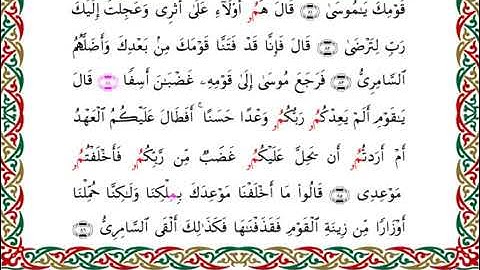 قَوْمِكَ يَـٰمُوسَىٰ ۝٨٣ قَالَ هُمُۥ أُوْلَآءِ عَلَىٰٓ أَثَرِى وَعَجِلْتُ إِلَيْكَ
رَبِّ لِتَرْضَىٰ ۝ قَالَ فَإِنَّا قَدْ فَتَنَّا قَوْمَكَ مِنۢ بَعْدِكَ وَأَضَلَّهُمُ
ٱلسَّامِرِىُّ ۝ فَرَجَعَ مُوسَىٰٓ إِلَىٰ قَوْمِهِۦ غَضْبَـٰنَ أَسِفًا ۝ قَالَ
يَـٰقَوْمِ أَلَمْ يَعِدْكُمُۥ رَبُّكُمُۥ وَعْدًا حَسَنًا ۚ أَفَطَالَ عَلَيْكُمُ ٱلْعَهْدُ
أَمْ أَرَدتُّمُۥ أَن يَحِلَّ عَلَيْكُمُۥ غَضَبٌ مِّن رَّبِّكُمُۥ فَأَخْلَفْتُمُۥ
مَوْعِدِى ۝ قَالُوا۟ مَآ أَخْلَفْنَا مَوْعِدَكَ بِمِلْكِنَا وَلَـٰكِنَّا حُمِّلْنَآ
أَوْزَارًا مِّن زِينَةِ ٱلْقَوْمِ فَقَذَفْنَـٰهَا فَكَذَٰلِكَ أَلْقَى ٱلسَّامِرِىُّ ۝